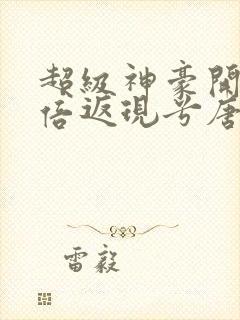 超級神豪開
倍返現兮唐
雷毅